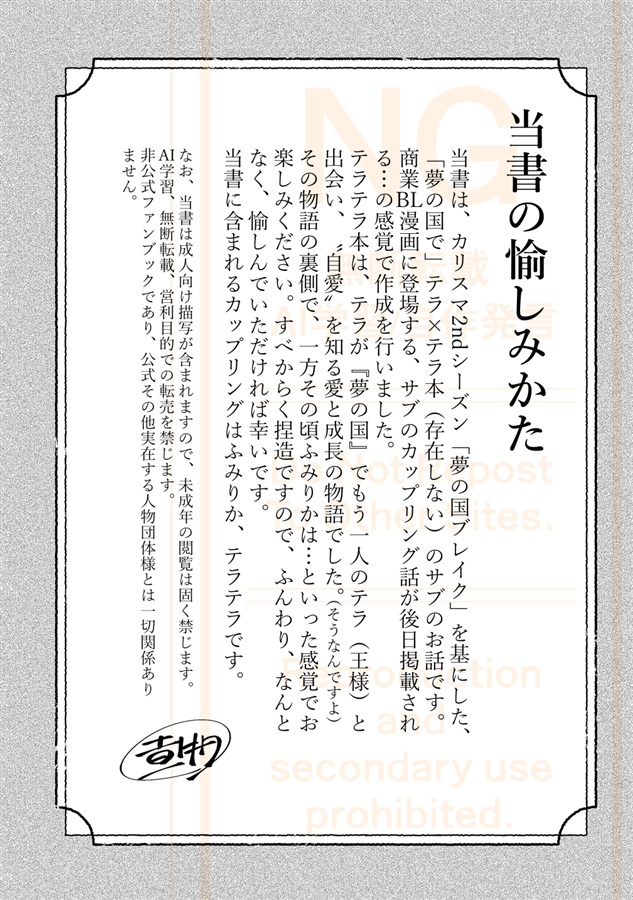 当書の愉しみかた
当書は、カリスマ2ndシーズン「夢の国ブレイク」を基にした、
「夢の国で」テラ×テラ本（存在しない）のサブのお話です。
商業BL漫画に登場する、サブのカップリング話が後日掲載され
る…の感覚で作成を行いました。
テラテラ本は、テラが『夢の国』でもう一人のテラ（王様）と
出会い、〝自愛〟を知る愛と成長の物語でした。（そうなんですよ）
その物語の裏側で、一方その頃ふみりかは…といった感覚でお
楽しみください。すべからく捏造ですので、ふんわり、なんと
なく、愉しんでいただければ幸いです。
当書に含まれるカップリングはふみりか、テラテラです。
なお、当書は成人向け描写が含まれますので、未成年の閲覧は固く禁じます。
AI学習、無断転載、営利目的での転売を禁じます。
非公式ファンブックであり、公式その他実在する人物団体様とは一切関係あり
ません。
NG
無断転載
AI学習
発言
Do Not Repost
To Other Sites.
Reproduction
and
secondary use
prohibited.